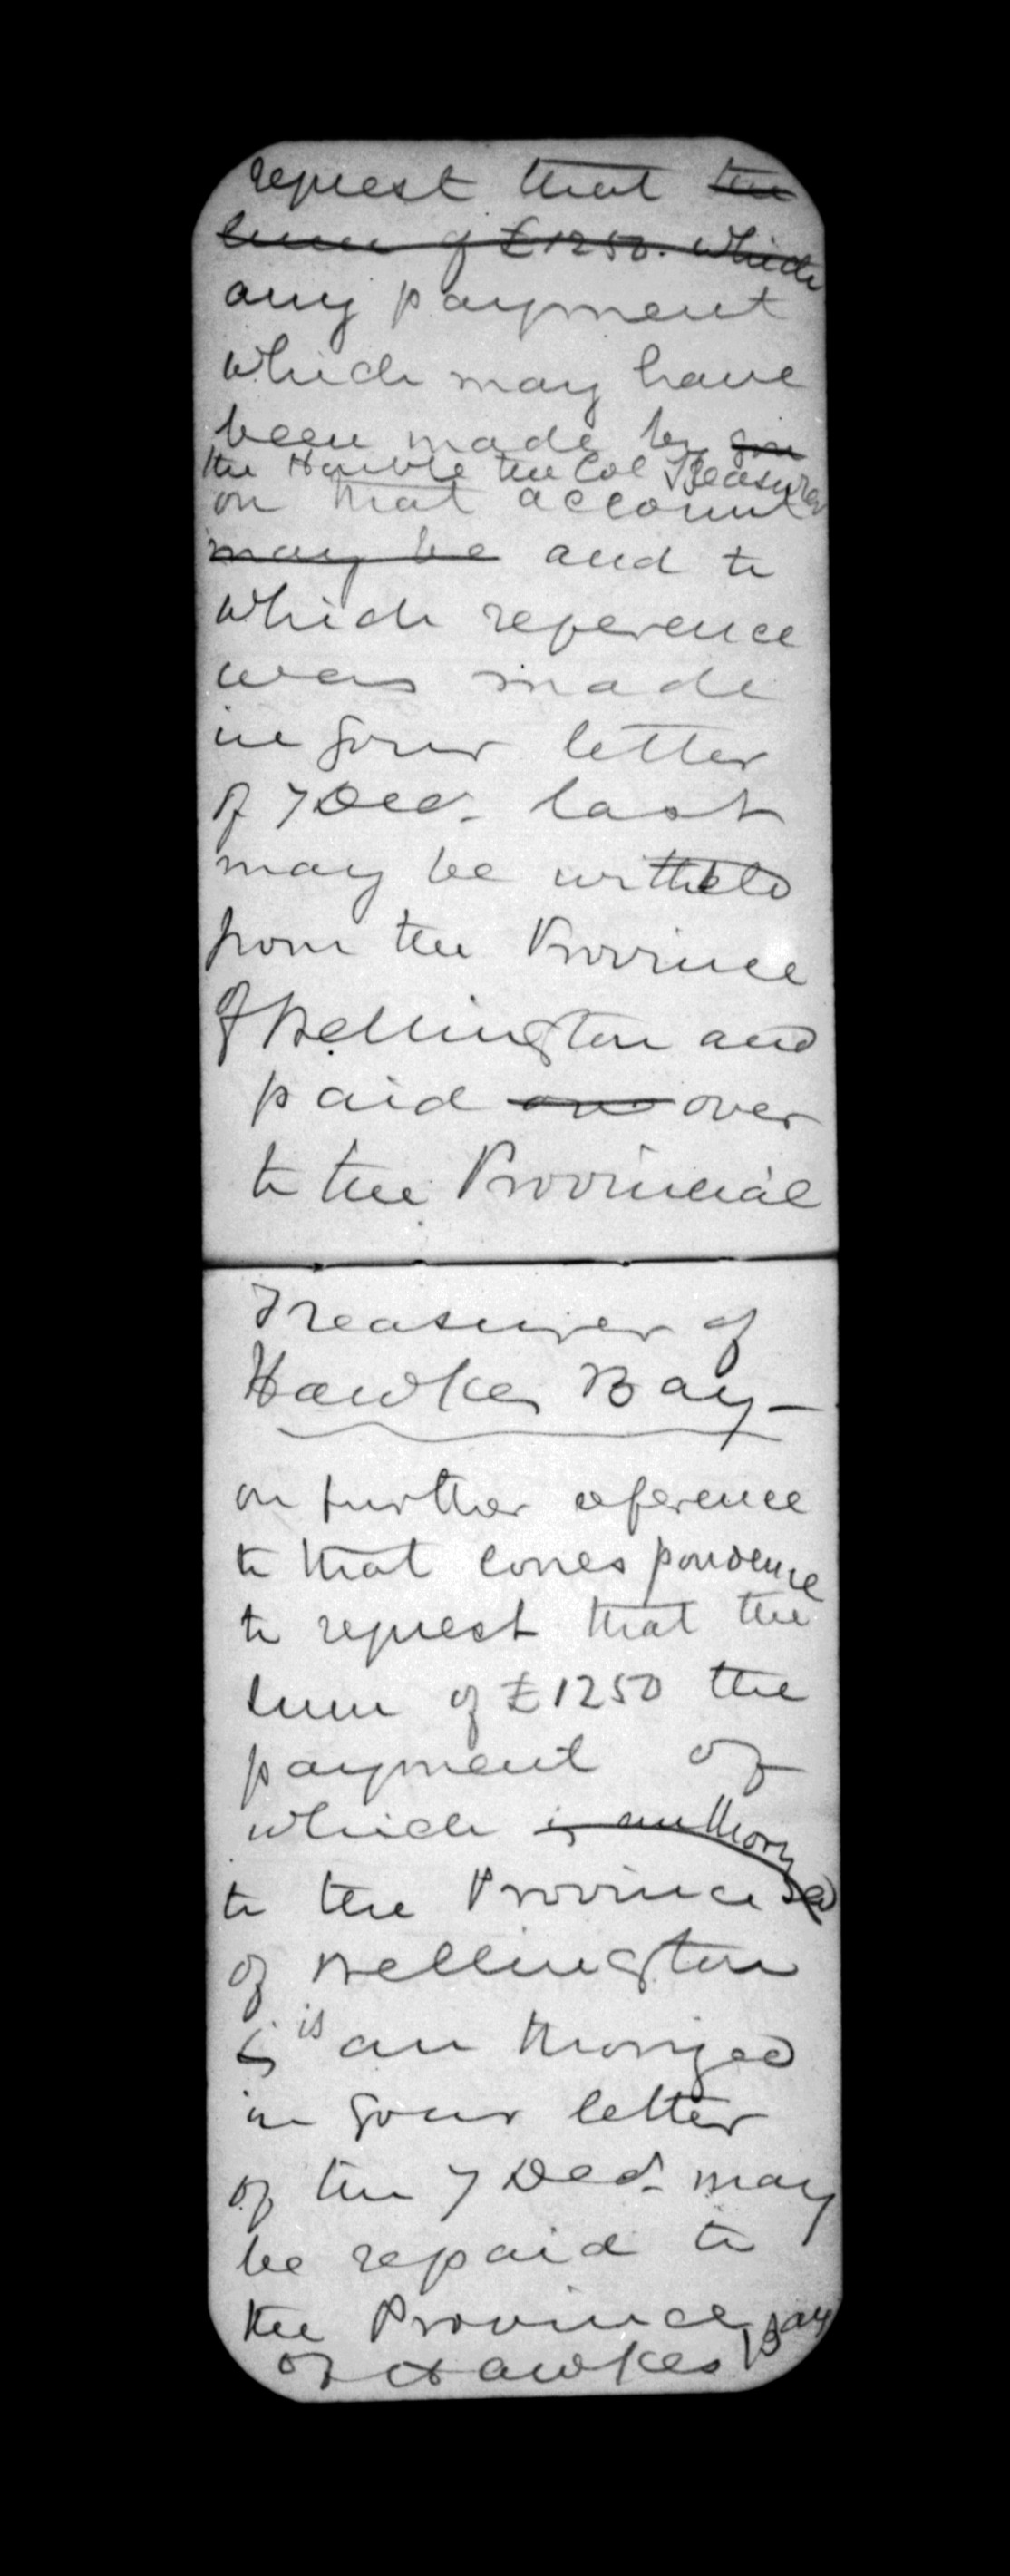 request that the
sum of £1250. which
any payment
which may have
been made by you
the Honble the Col Treasurer
on that account
may be and to
which reference
was made
in your letter
of 7 Dec. last
may be withheld
from the Province
of Wellington and
paid over
to the Provincial
Treasurer of
Hawkes Bay –
on further reference
to that correspondence
to request that the
sum of £1250 the
payment of
which is authorized
to the Province
of Wellington
is authorized
in your letter
of the 7 Dec. may
be repaid to
the Province
of Hawkes Bay